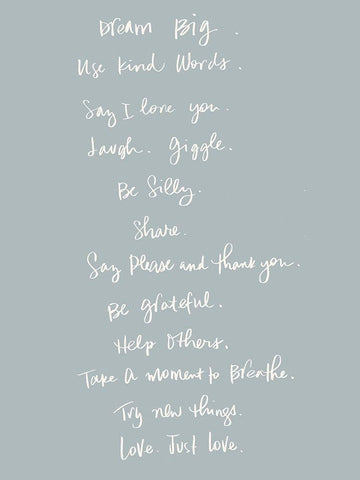 Dream Big.
Use Kind Words.
Say I love you.
Laugh. Giggle.
Be Silly.
Share.
Say Please and thank you.
Be grateful.
Help Others.
Take A moment to Breathe.
Try new things.
Love. Just love.